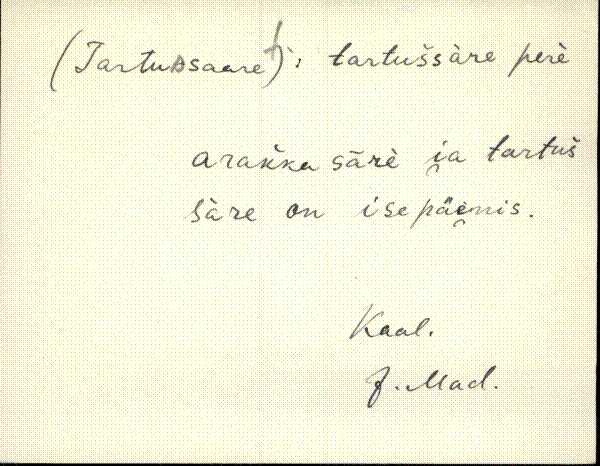 (Tartussaare t): tartušsàre perè
arakka sārè i̯a tartuš
sàre on isepäi̯nis.
Kaal.
F. Mad.